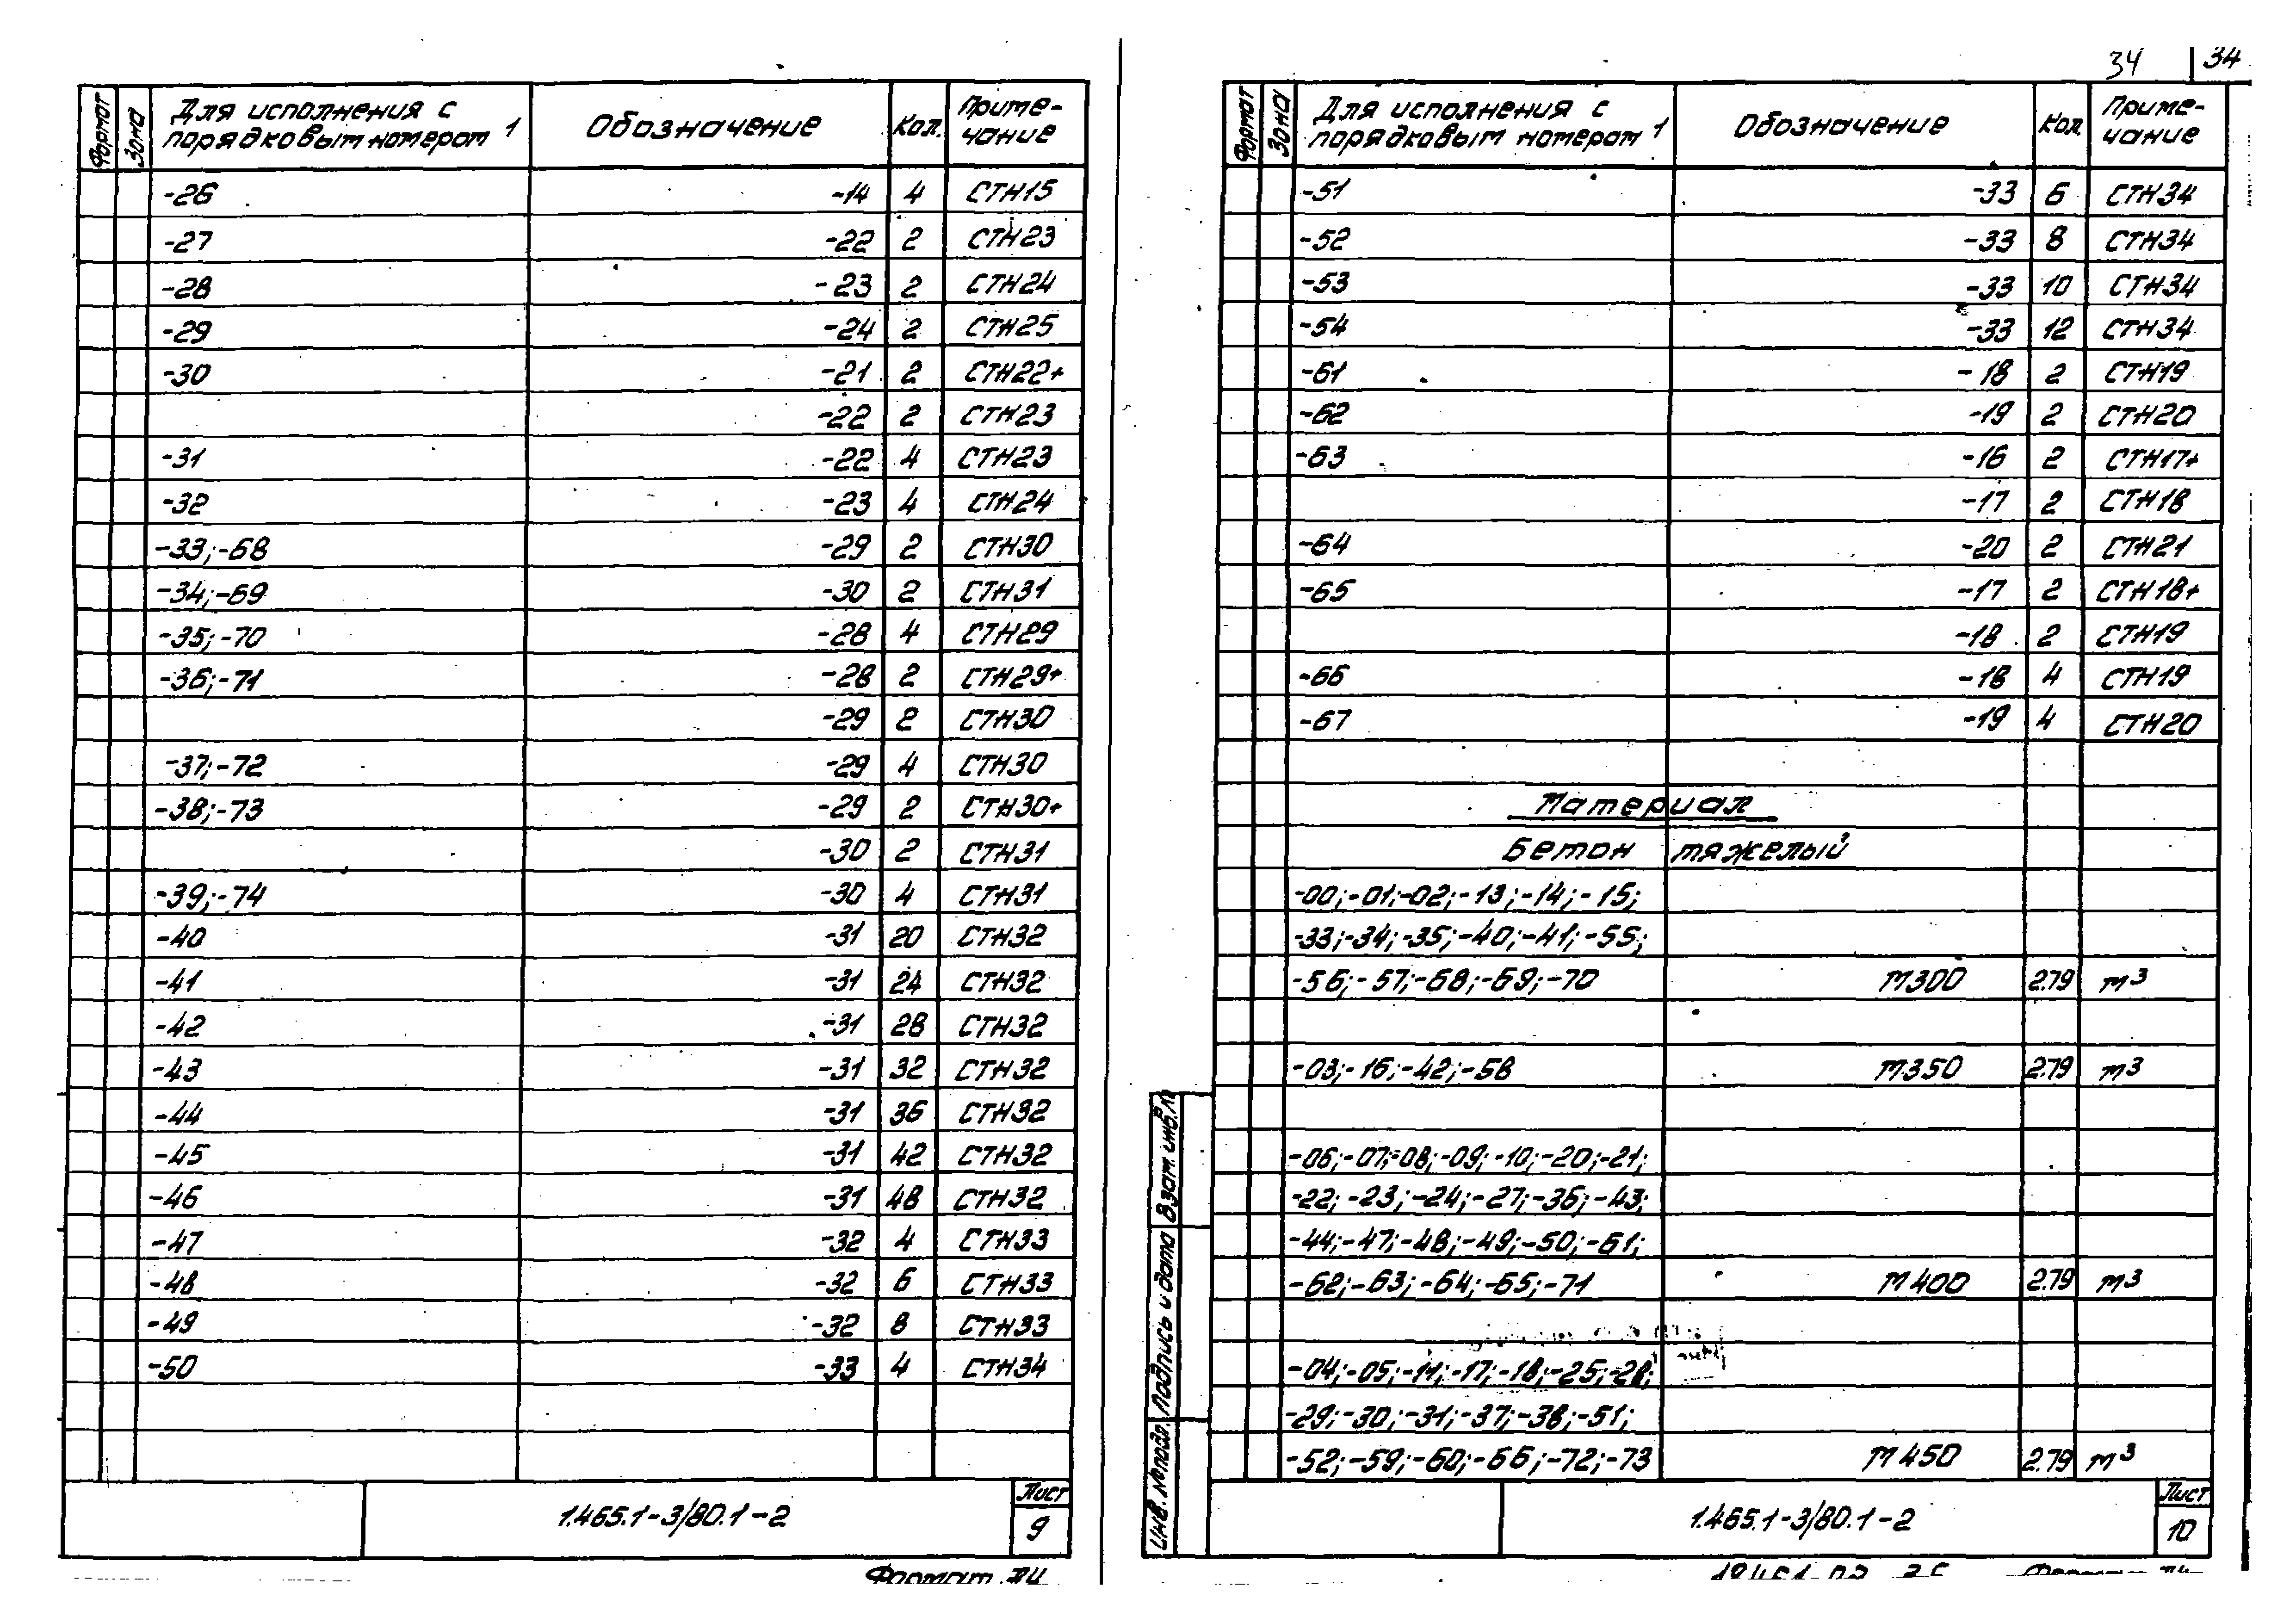 34 34
Формат Зона Для исполнения с порядковым номером 1 Обозначение Кол. Приме-чание
-26 -14 4 СТН15
-27 -22 2 СТН23
-28 -23 2 СТН24
-29 -24 2 СТН25
-30 -21 2 СТН22+
-22 2 СТН23
-31 -22 4 СТН23
-32 -23 4 СТН24
-33;-68 -29 2 СТН30
-34;-69 -30 2 СТН31
-35;-70 -28 4 СТН29
-36;-71 -28 2 СТН29+
-29 2 СТН30
-37;-72 -29 4 СТН30
-38;-73 -29 2 СТН30+
-30 2 СТН31
-39;-74 -30 4 СТН31
-40 -31 20 СТН32
-41 -31 24 СТН32
-42 -31 28 СТН32
-43 -31 32 СТН32
-44 -31 36 СТН32
-45 -31 42 СТН32
-46 -31 48 СТН32
-47 -32 4 СТН33
-48 -32 6 СТН33
-49 -32 8 СТН33
-50 -33 4 СТН34
1.465.1-3/80.1-2
Лист
9
Формат
Формат Зона Для исполнения с порядковым номером 1 Обозначение Кол. Приме-чание
-51 -33 6 СТН34
-52 -33 8 СТН34
-53 -33 10 СТН34
-54 -33 12 СТН34
-61 -18 2 СТН19
-62 -19 2 СТН20
-63 -16 2 СТН17+
-17 2 СТН18
-64 -20 2 СТН21
-65 -17 2 СТН18+
-18 2 СТН19
-66 -18 4 СТН19
-67 -19 4 СТН20
Материал
Бетон тяжелый
-00;-01;-02;-13;-14;-15;
-33;-34;-35;-40;-41;-55;
-56;-57;-68;-69;-70 М300 2.79 м³
-03;-16;-42;-58 М350 2.79 м³
-06;-07;-08;-09;-10;-20;-21;
-22;-23;-24;-27;-36;-43;
-44;-47;-48;-49;-50;-61;
-62;-63;-64;-65;-71 М400 2.79 м³
-04;-05;-11;-17;-18;-25;-28;
-29;-30;-31;-37;-38;-51;
-52;-59;-60;-66;-72;-73 М450 2.79 м³
Инв. № подл. Подпись и дата Взам. инв. №
1.465.1-3/80.1-2
Лист
10